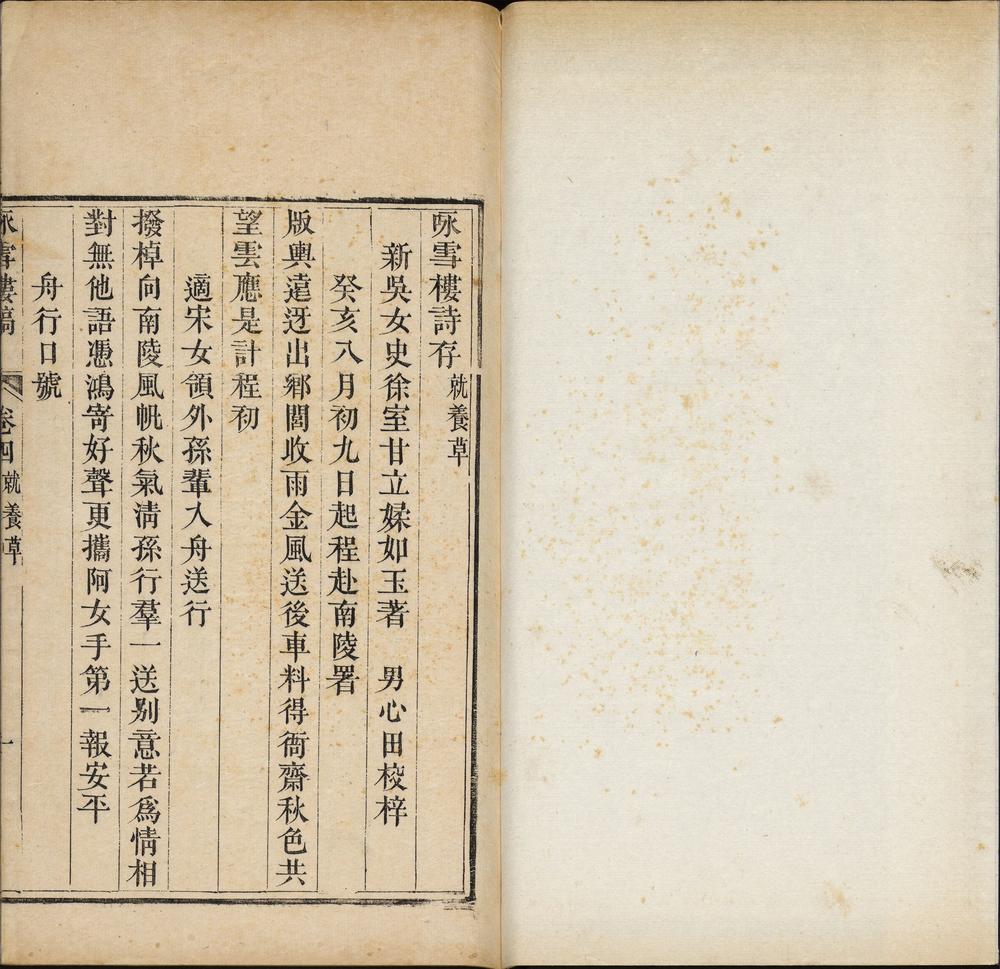 咏雪樓詩存 就養草
新吳女史徐室甘立媃如玉著 男心田校梓
癸亥八月初九日起程赴南陵署
版輿遠迓出鄉閭收雨金風送後車料得衙齋秋色共
望雲應是計程初
適宋女領外孫輩入舟送行
撥棹向南陵風帆秋氣清孫行羣一送別意若爲情相
對無他語憑鴻寄好聲更攜阿女手第一報安平
舟行口號
咏雪樓稿 卷四 就養草 一